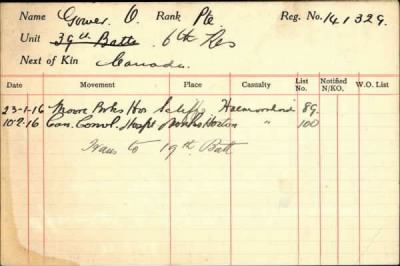 Name Gower. O. Rank Pte. Reg. No. 141329.
Unit 39th Batt. 6th Res
Next of Kin Canada.
Date Movement Place Casualty List No. Notified N/KO. W.O. List
23-1-16 Moore Bks Hos Haemorrhoid 89.
10-2-16 Can. Convl. Hospl Monks Horton " 100
Trans to 19th Batt